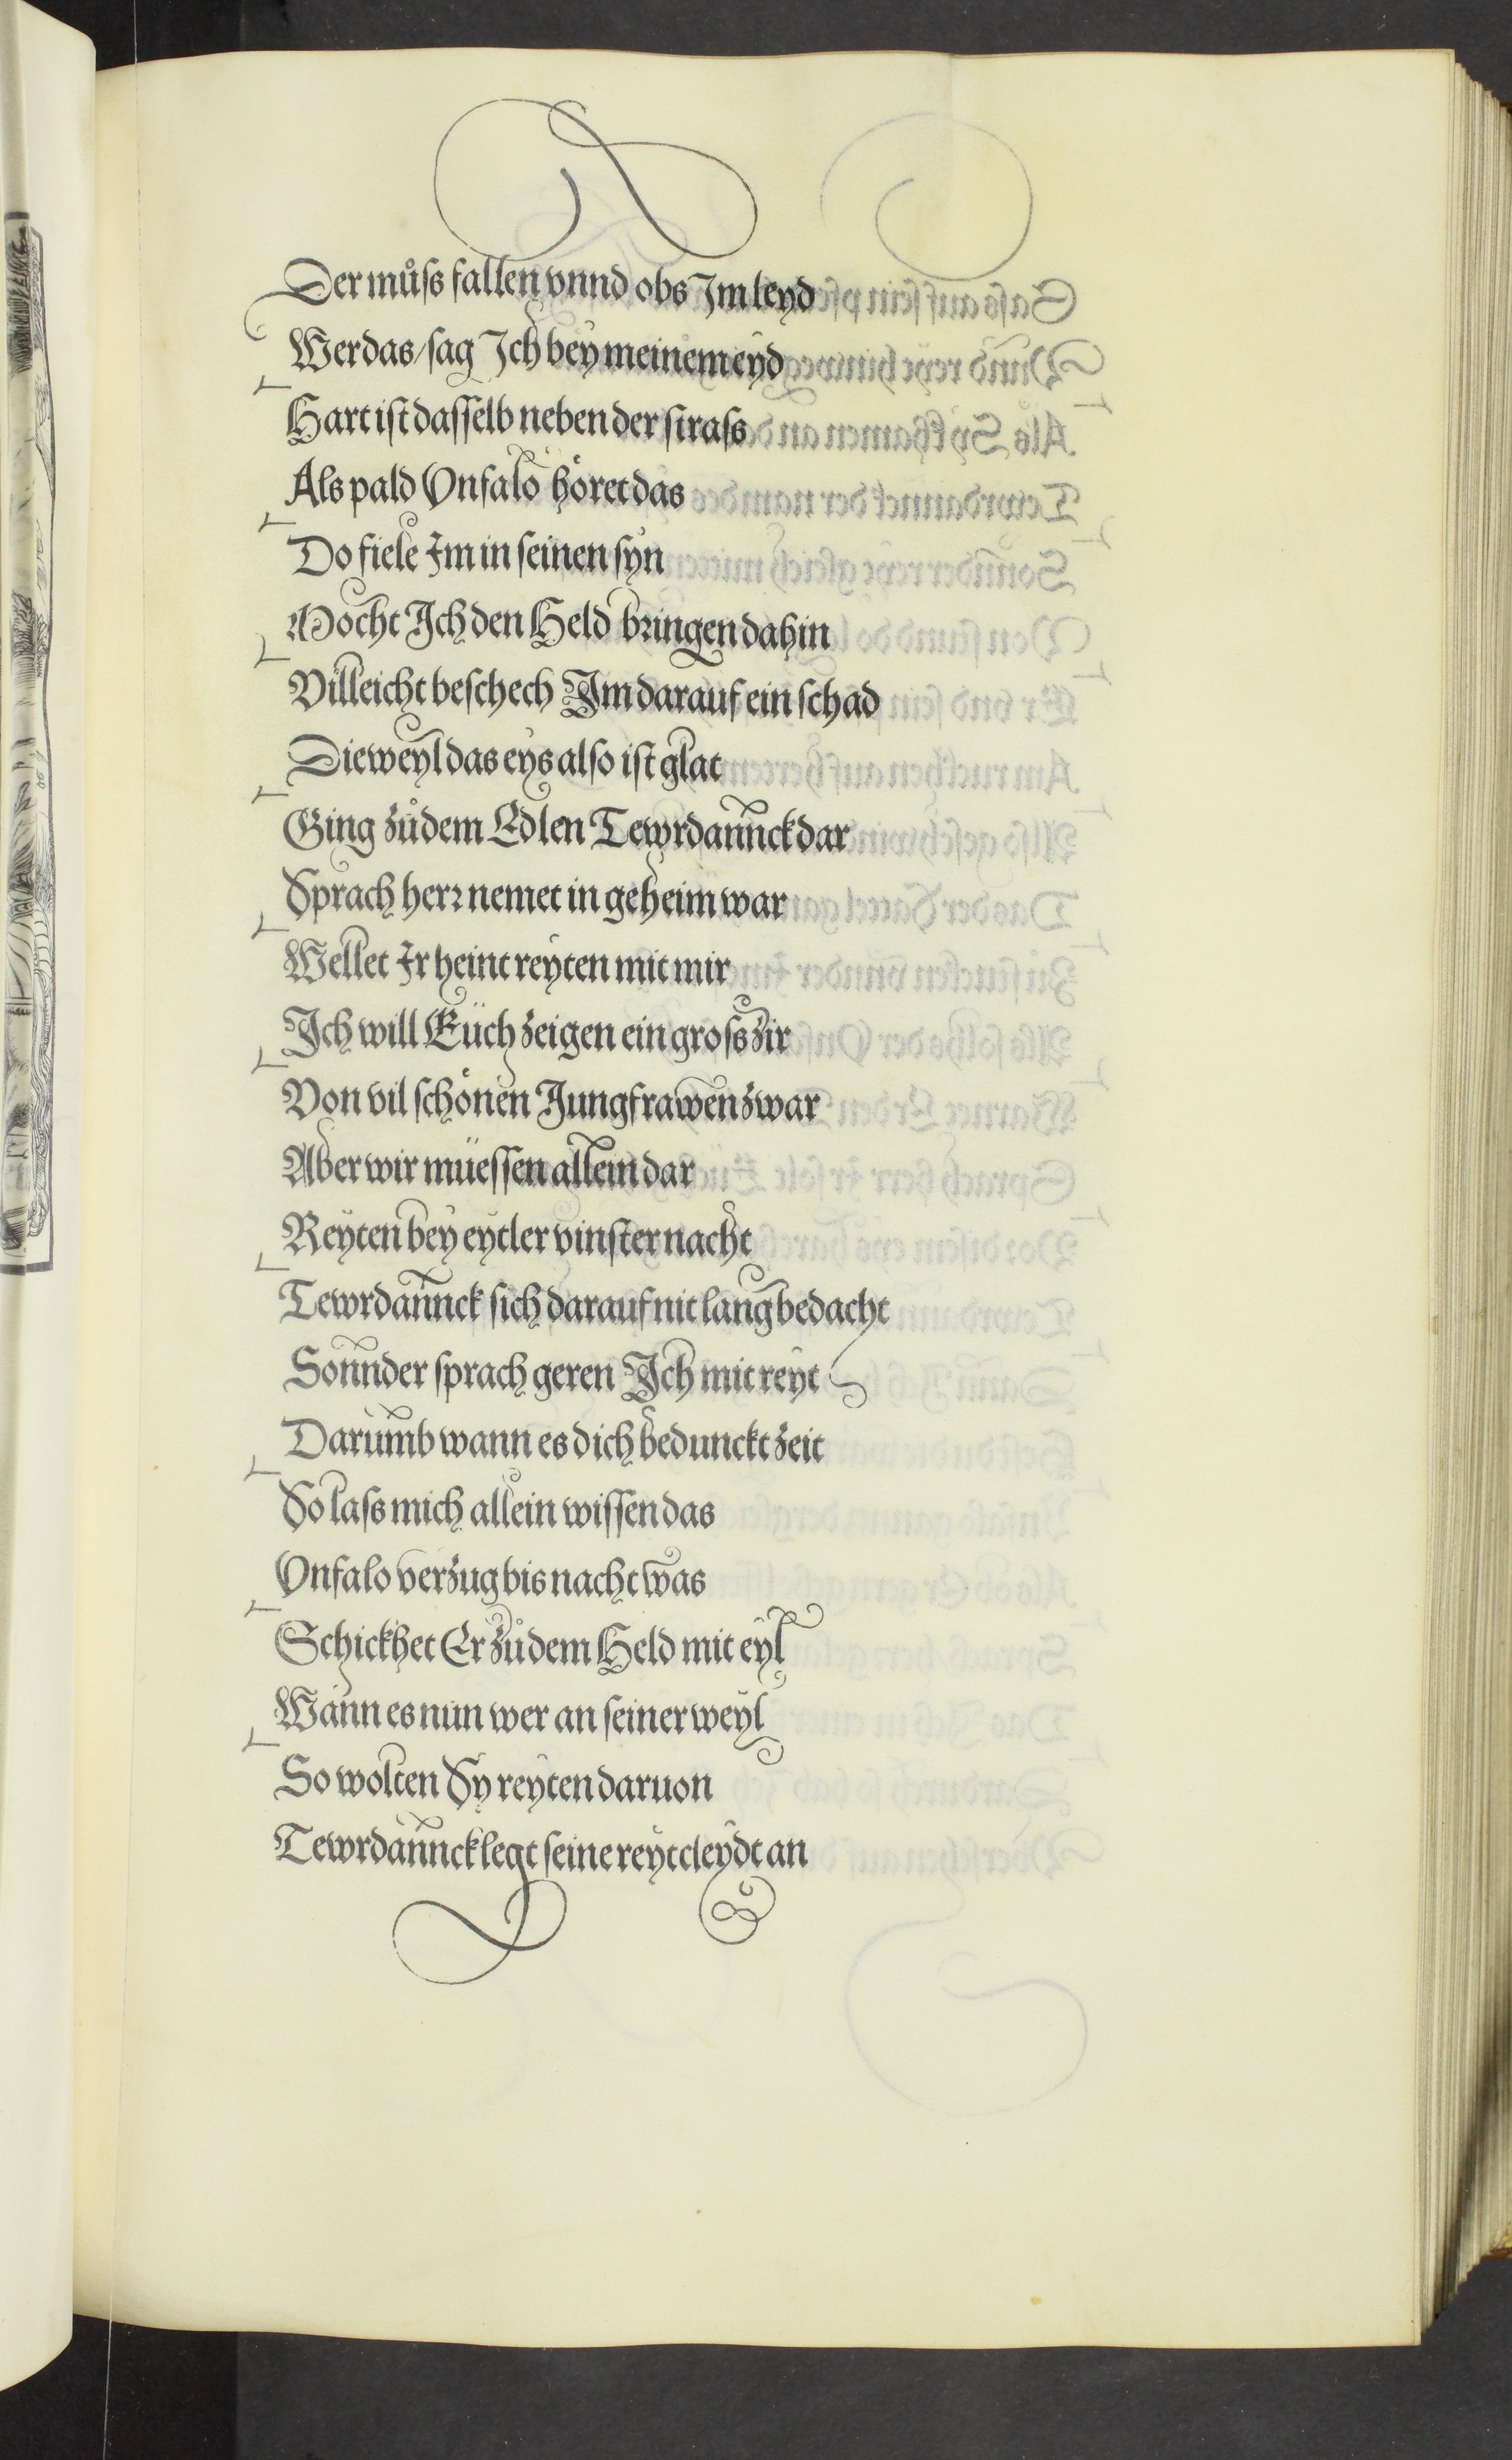 Der můſs fallen vnnd obs Im leyd
Wer das/ſag Ich bey meinem eyd
Hart iſt daſſelb neben der ſtraſs
Als pald Vnfalo höret das
Do fiele Im in ſeinen ſyn
Mocht Ich den Held bringen dahin
Villeicht beſchech Im darauf ein ſchad
Dieweyl das eys alſo iſt glat
Ging zůdem Edlen Tewrdannck dar
Sprach herr nemet in geheim war
Wellet Ir heint reyten mit mir
Ich will Eüch zeigen ein groſs zir
Von vil ſchönen Jungfrawen zwar
Aber wir müeſſen allein dar
Reyten bey eytler vinſter nacht
Tewrdannck ſich darauf nit lang bedacht
Sonnder ſprach geren Ich mit reyt
Darumb wann es dich bedunckt zeit
So laſs mich allein wiſſen das
Vnfalo verzug bis nacht was
Schickhet Er zůdem Held mit eyl
Wann es nun wer an ſeiner weyl
So wolten Sy reyten daruon
Tewrdannck legt ſeine reytcleydt an